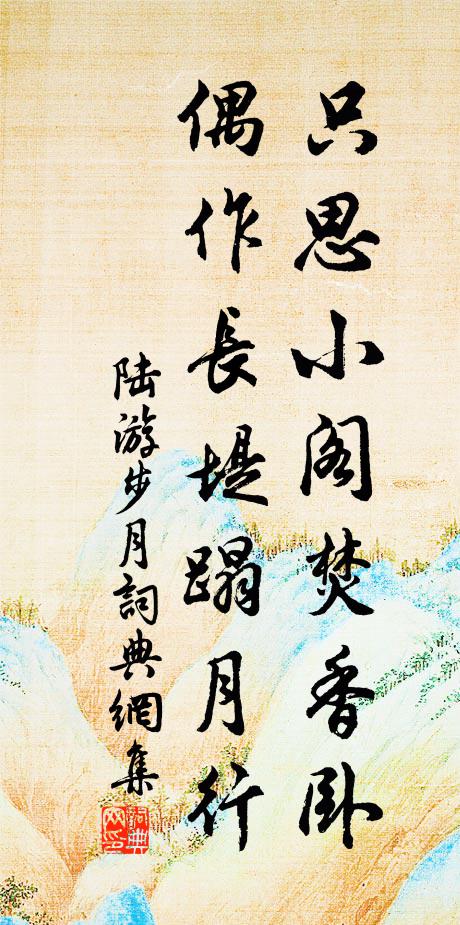 只思小阁焚香卧
偶作長堤蹋月行
陆游步月詞典網集
詞典